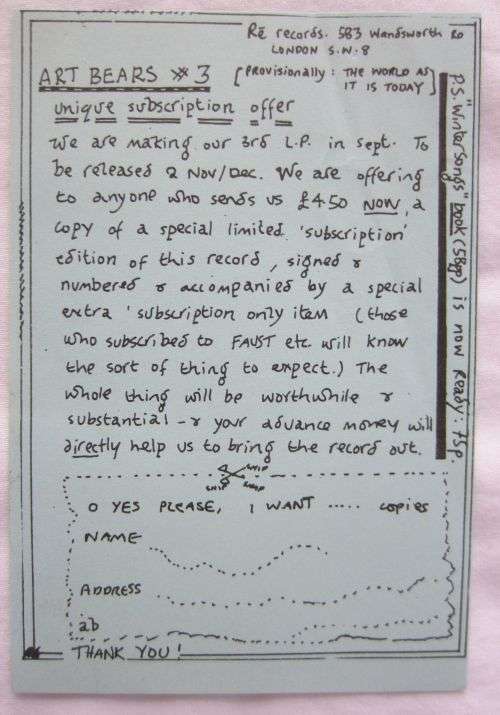 Rē records. 583 Wandsworth Rd
LONDON S.W.8
ART BEARS #3
[Provisionally: THE WORLD AS
IT IS TODAY]
unique subscription offer
We are making our 3rd L.P. in sept. To
be released 2 Nov/Dec. We are offering
to anyone who sends us £4.50 NOW, a
copy of a special limited 'subscription'
edition of this record, signed &
numbered & accompanied by a special
extra 'subscription only item (those
who subscribed to FAUST etc. will know
the sort of thing to expect.) The
whole thing will be worthwhile &
substantial - & your advance money will
directly help us to bring the record out.
P.S. "Wintersongs" book (58pp) is now Ready: 75p.
SNIP SNIP
SNIP SNIP
O YES PLEASE, I WANT ..... copies
NAME
ADDRESS
ab
THANK YOU!